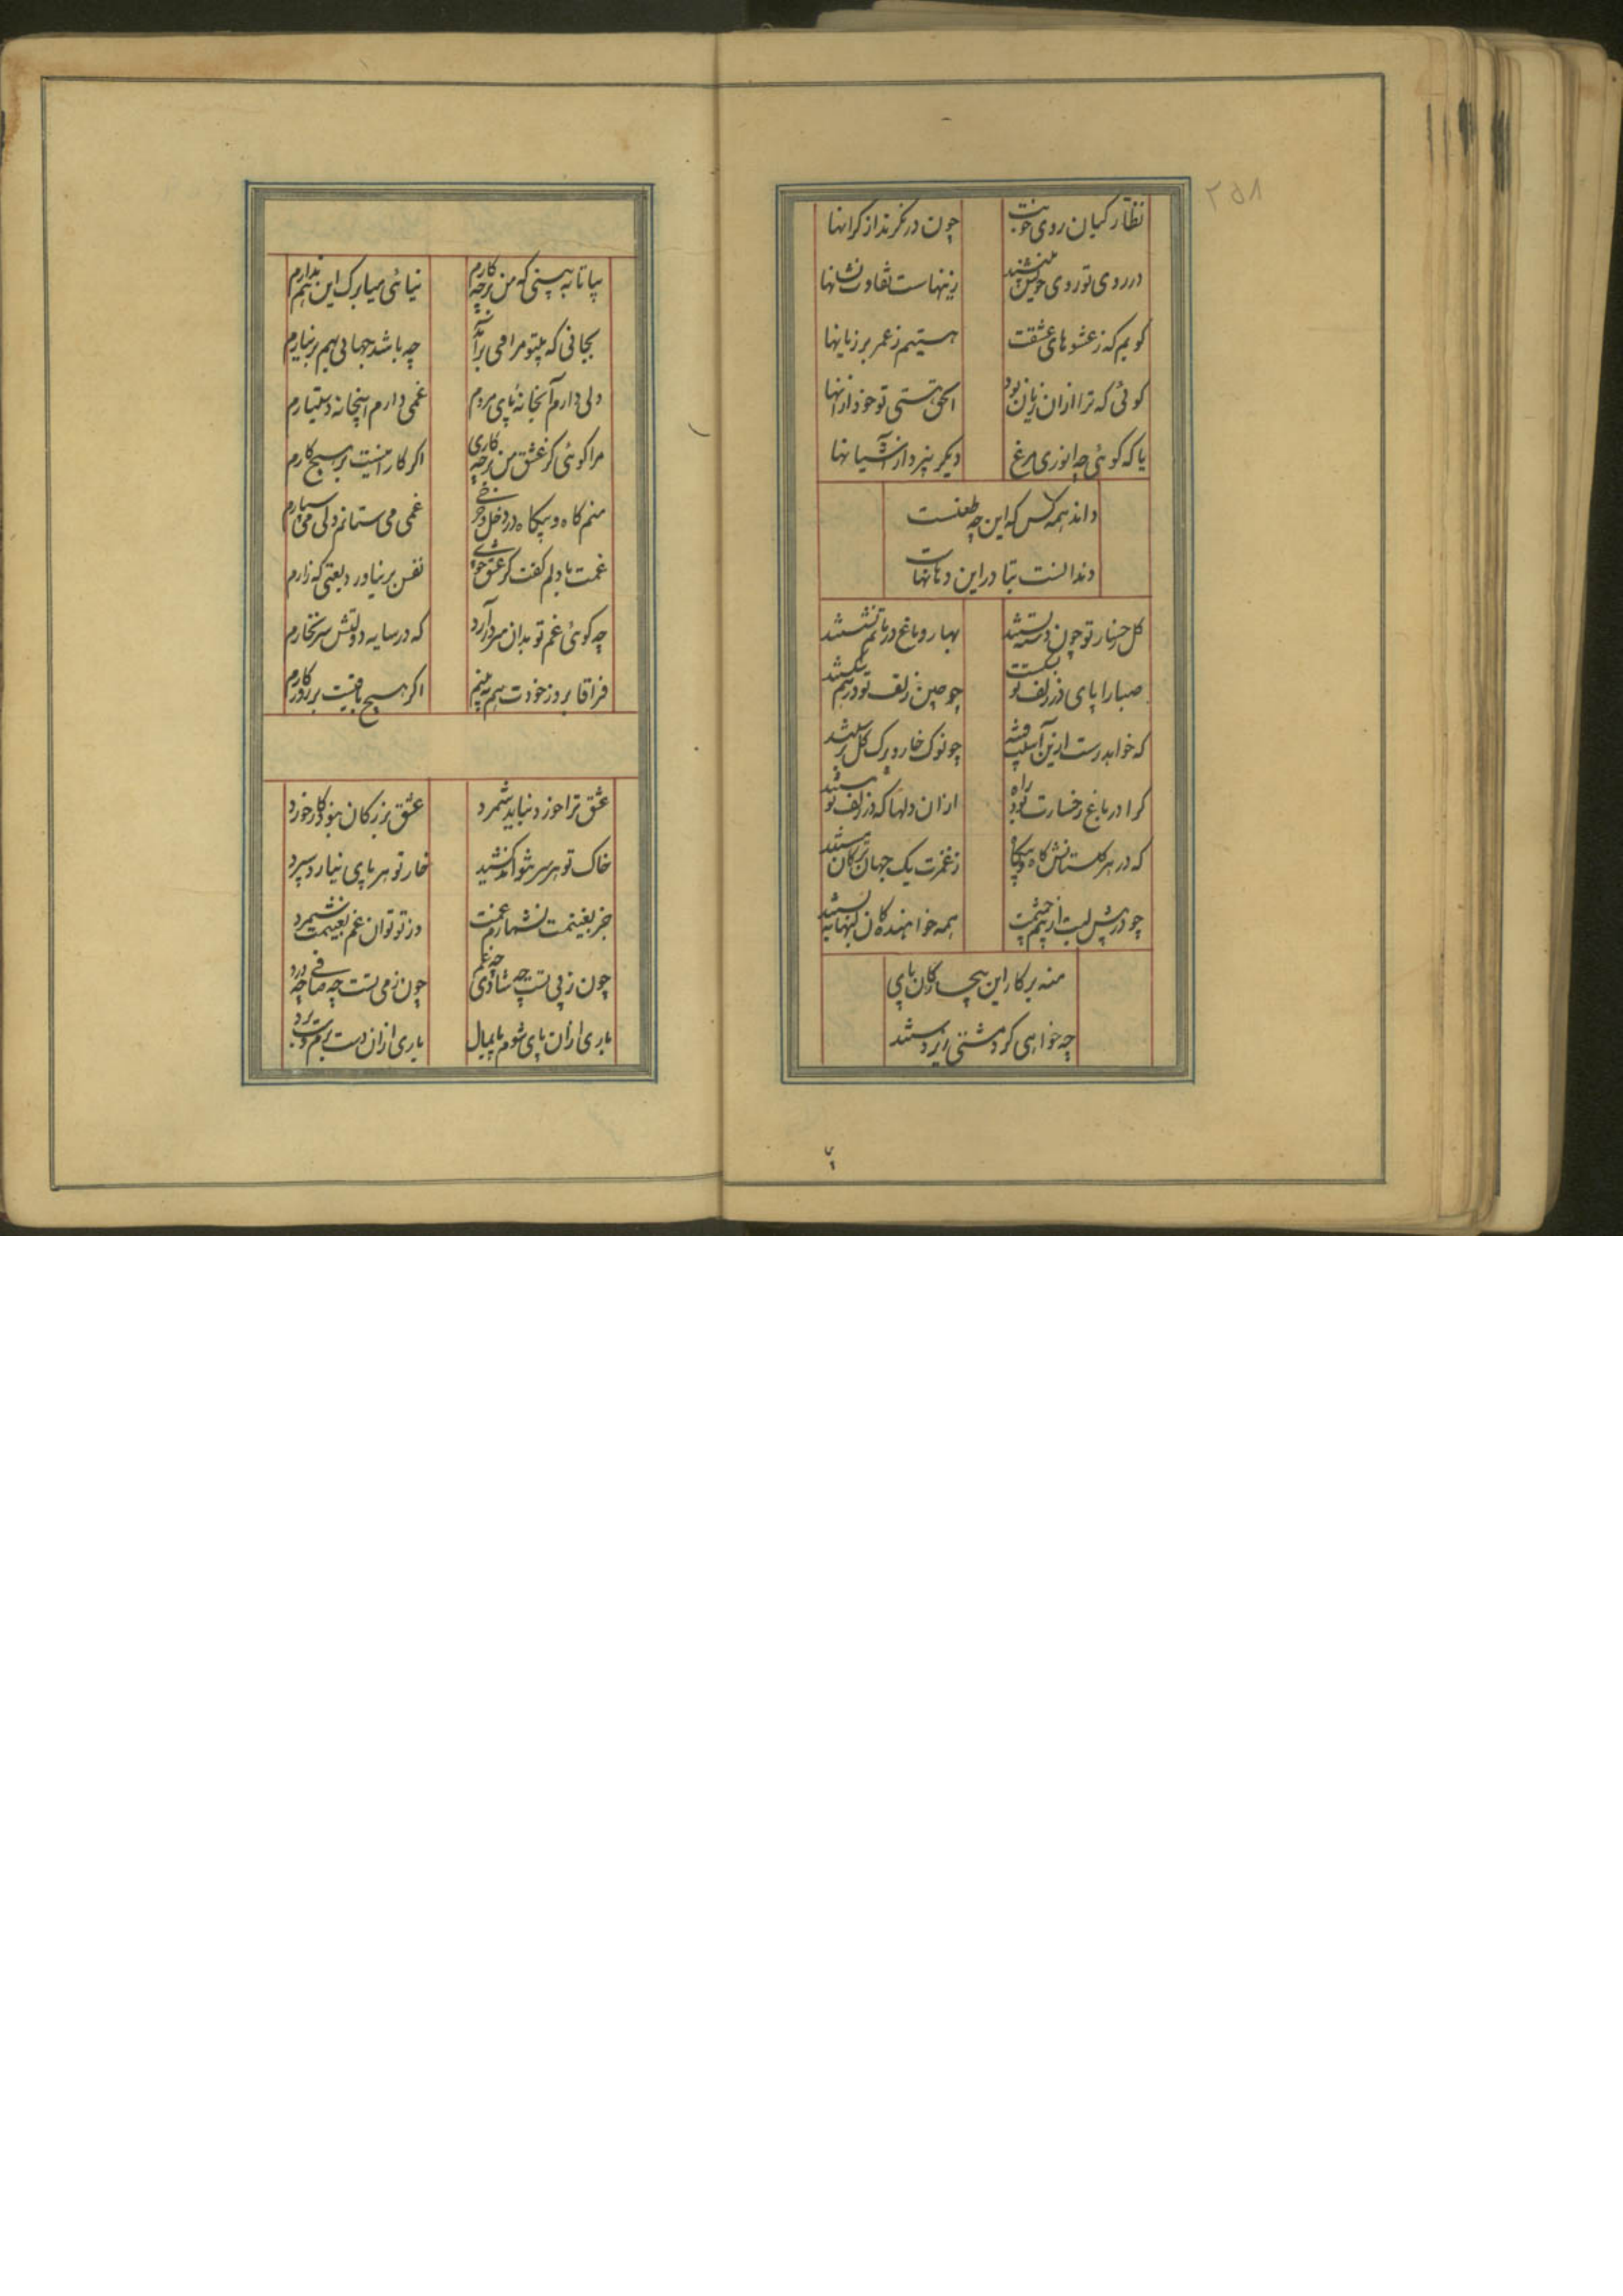 ۲۵۸
نظارکیان روی خوبت چون درنکرند از کرانها
در روی تو روی خویش بینند زینهاست تفاوت نشانها
کویم که ز عشوهای عشقت هستیم ز عمر بر زیانها
کوئی که ترا ازان زیان بود الحق هستی تو خود ازانها
یا که کوئی چه انوری مرغ دیکر نپرد از آشیانها
داند همه کس که این چه طعنست
دندانست بتا در این دهانها
کل رخسار تو چون دسته بستند بهار و باغ در ماتم نشستند
صبا را پای در زلف تو بشکست چو چین زلف تو درهم شکستند
که خواهد رست ازین آسیب فتنه چو نوک خار و برک کل
کرا در باغ رخسارت بود راه ازان دلها که در زلف تو بستند
که در هر کلستانش کاه و بیکاه ز غمزت یک جهان ترکان مستند
چو در پیش لبت از چشمت همه خواهندکان لبها به بستند
منه بر کار این بیچارکان پای
چه خواهی کرد مشتی زیردستند
بیا تا به بینی که من برچه کارم نیائی میا برک این هم ندارم
بجانی که بیتو مرا می برآید چه باشد جهانی بهم برنیارم
دلی دارم آنجا نه پای مردم غمی دارم اینجا نه دستیارم
مرا کوئی کز عشق من برچه کاری اکر کار اینست بر هیچ کارم
منم کاه و بیکاه در دخل و خرج غمی می ستانم دلی می سپارم
غمت با دلم کفت کز عشق چونی نفس برنیاورد یعنی که زارم
چه کوئی غم تو بدان سر درآرد که در سایه دولتش سر نخارم
فراقا بروز خودت هم به بینم اکر هیچ باقیست بر روزکارم
عشق ترا خورد نباید شمرد عشق بزرکان نبود کار خورد
خاک تو هر سر نتواند کشید خار تو هر پای نیارد سپرد
جز بغنیمت نشمارم غمت وز تو توان غم بغنیمت شمرد
چون ز پی تست چه شادی چه غم چون ز می تست چه صافی چه درد
باری ازان پای شوم پایمال باری ازان دست برم دستبرد